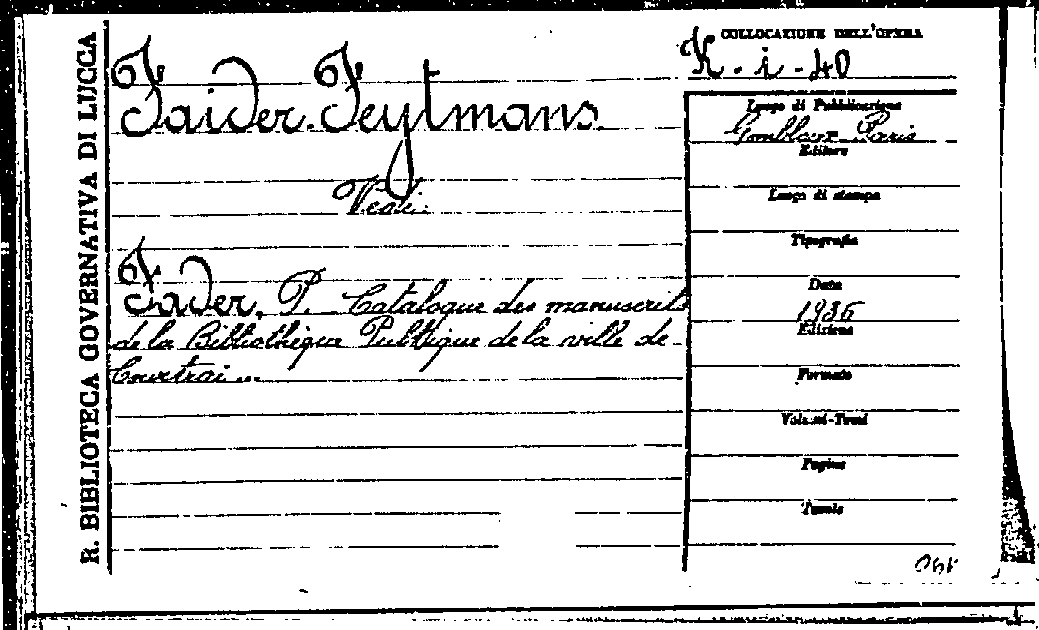 R. BIBLIOTECA GOVERNATIVA DI LUCCA
COLLOCAZIONE DELL'OPERA
K. i. 40
Faider-Feytmans.
Vedi:
Faider, P. Catalogue des manuscrits
de la Bibliothèque Publique de la ville de
Courtrai...
Luogo di Pubblicazione
Gembloux Paris
Editore
Luogo di stampa
Tipografia
Data
1936
Edizione
Formato
Volumi-Tomi
Pagine
Tavole